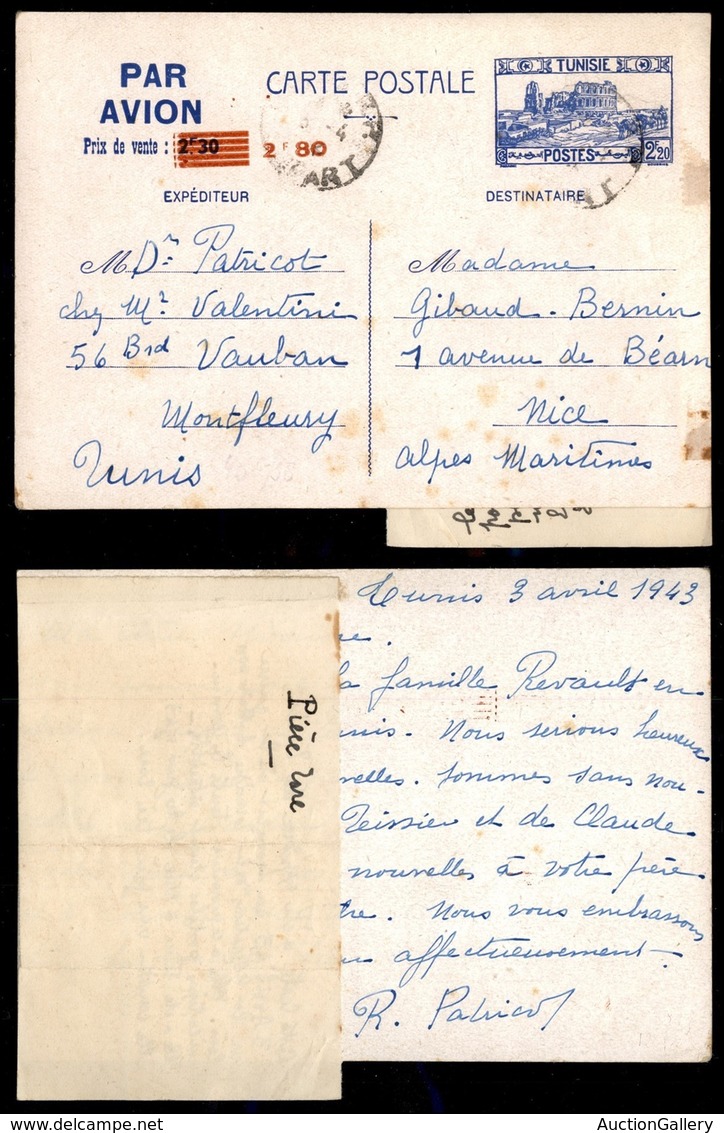 PAR AVION
CARTE POSTALE
TUNISIE
POSTES
2F20
Prix de vente : 2F30 2F80
EXPÉDITEUR
DESTINATAIRE
M Dr Patricot
chez Mr Valentini
56 Brd Vauban
Montfleury
Tunis
Madame
Gibaud-Bernin
1 avenue de Béarn
Nice
Alpes Maritimes
Tunis 3 avril 1943
la famille Revault en
Nous serions heureux
sommes sans nou-
Teissier et de Claude
nouvelles à votre frère
Nous vous embrassons
affectueusement
R. Patricot
Pièce rare
AuctionGallery